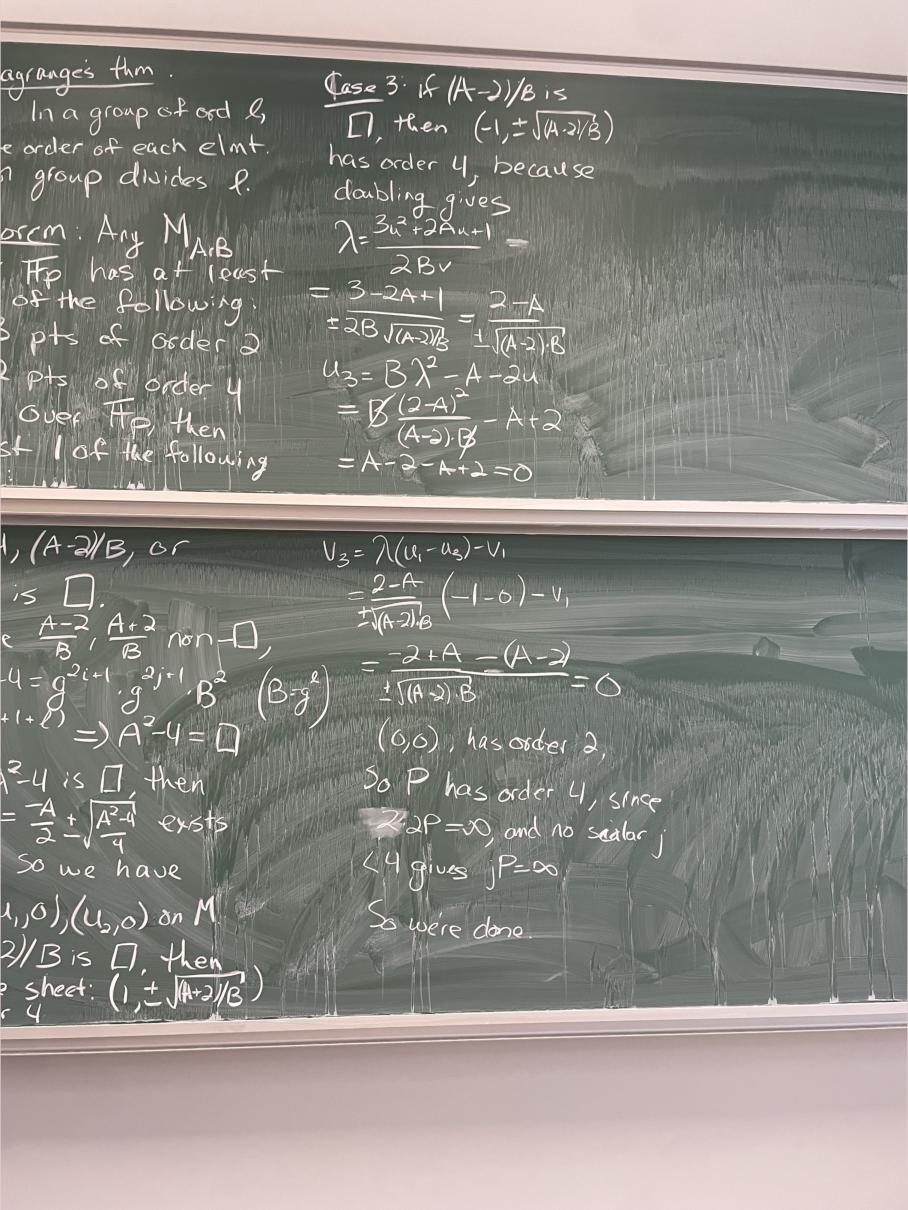 agrange's thm.
In a group of ord ℓ,
e order of each elmt.
n group divides ℓ.
orem: Any M_{A,B}
𝔽p has at least
of the following:
3 pts of order 2
2 pts of order 4
over 𝔽p, then
st 1 of the following
Case 3: if (A-2)/B is
□, then (-1, ±√((A-2)/B))
has order 4, because
doubling gives
λ = (3u²+2Au+1)/(2Bv)
= (3-2A+1)/(±2B√((A-2)/B)) = (2-A)/(±√((A-2)·B))
u₃ = Bλ² - A - 2u
= B(2-A)²/((A-2)·B) - A+2
= A-2-A+2 = 0
4, (A-2)/B, or
is □.
e (A-2)/B, (A+2)/B non-□,
-4 = g^{2i+1} · g^{2j+1} · B² (B=g^ℓ)
+1+ℓ) ⇒ A²-4 = □
A²-4 is □, then
= -A/2 ± √((A²-4)/4) exists
So we have
u₁,0),(u₂,0) on M
2)/B is □, then
e sheet: (1, ±√((A+2)/B))
r 4
v₃ = λ(u₁-u₃)-v₁
= (2-A)/(±√((A-2)·B)) (-1-0) - v₁
= (-2+A-(A-2))/(±√((A-2)·B)) = 0
(0,0), has order 2,
So P has order 4, since
2·2P=∞, and no scalar j
<4 gives jP=∞
So were done.